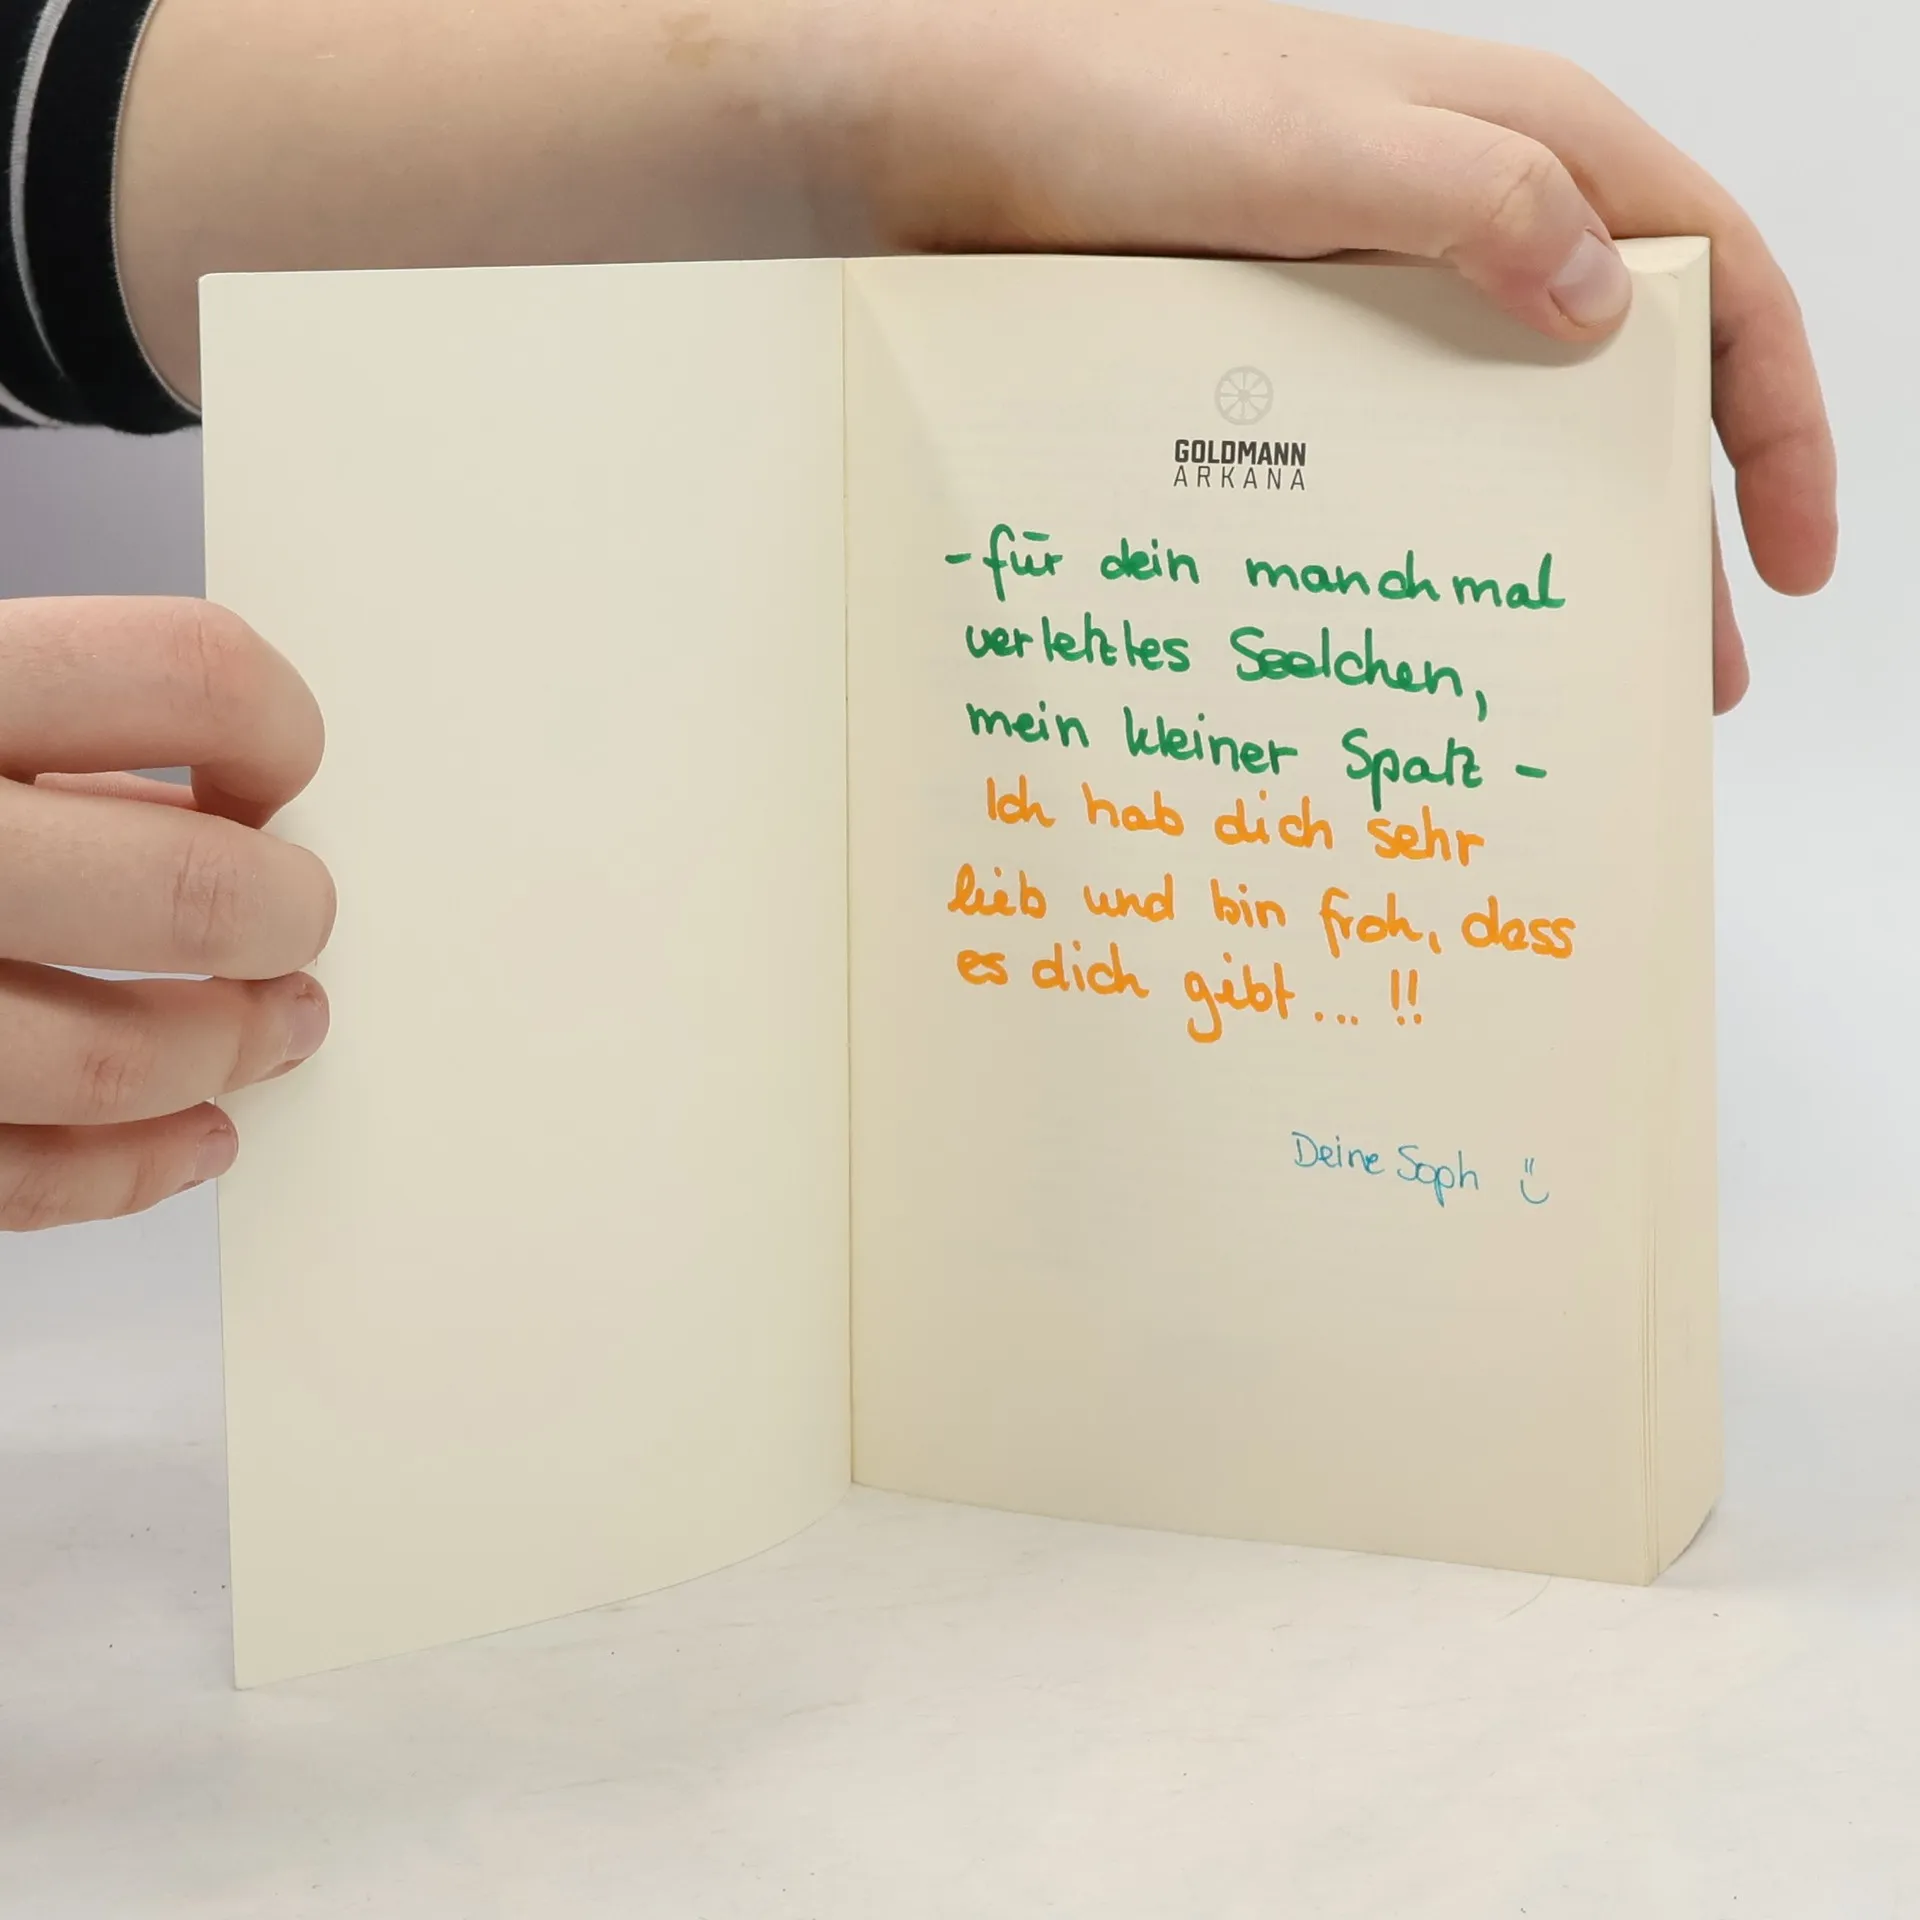 GOLDMANN
ARKANA
- für dein manchmal
verletztes Seelchen,
mein kleiner Spatz -
Ich hab dich sehr
lieb und bin froh, dass
es dich gibt... !!
Deine Soph